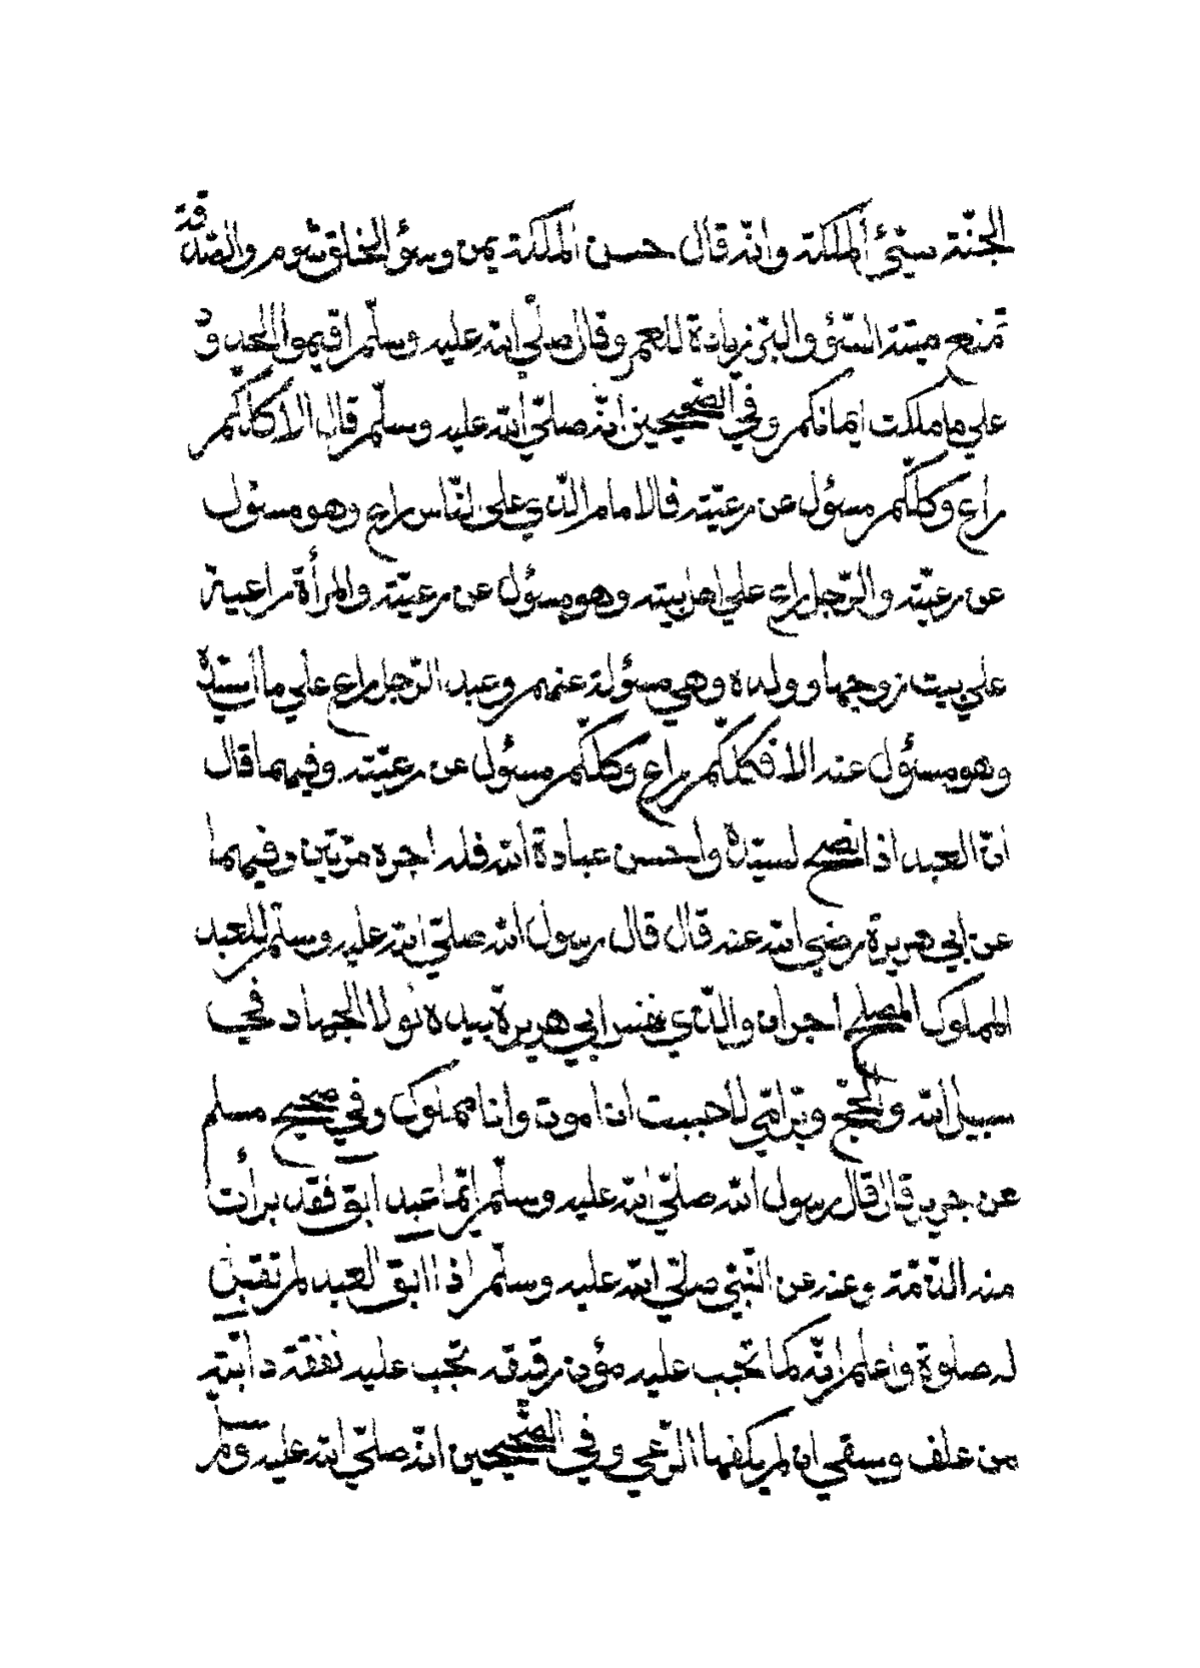 الجنّة سيّئ الملكة وانّه قال حسن الملكة يمن وسؤ الخلق شوم والصّدقة
تمنع ميتة السّؤ والبرّ زيادة للعمر وقال صلّي الله عليه وسلّم اقيموا الحدود
علي ما ملكت ايمانكم وفي الصّحيحين انّه صلّي الله عليه وسلّم قال الا كلّكم
راع وكلّكم مسئول عن رعيّته فالامام الّذي علي النّاس راع وهو مسئول
عن رعيّته والرّجل راع علي اهل بيته وهو مسئول عن رعيّته والمرأة راعية
علي بيت زوجها وولده وهي مسئولة عنهم وعبد الرّجل راع علي مال سيّده
وهو مسئول عنه الا فكلّكم راع وكلّكم مسئول عن رعيّته وفيهما قال
انّ العبد اذا نصح لسيّده واحسن عبادة الله فله اجره مرّتين وفيهما
عن ابي هريرة رضي الله عنه قال قال رسول الله صلّي الله عليه وسلّم للعبد
المملوك المصلح اجران والّذي نفس ابي هريرة بيده لولا الجهاد في
سبيل الله والحجّ وبرّ امّي لاحببت ان اموت وانا مملوك وفي صحيح مسلم
عن جرير قال قال رسول الله صلّي الله عليه وسلّم ايّما عبد ابق فقد برأت
منه الذّمّة وعنه عن النّبيّ صلّي الله عليه وسلّم اذا ابق العبد لم تقبل
له صلوة واعلم انّه كما تجب عليه مؤن رقيقه تجب عليه نفقة دابّته
من علف وسقي ان لم يكفها الرّعي وفي الصّحيحين انّه صلّي الله عليه وسلّم